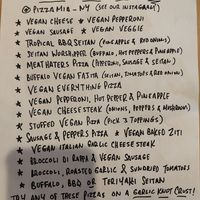 @ PIZZA MIA_NY (SEE OUR INSTAGRAM)
★ VEGAN CHEESE ★ VEGAN PEPPERONI
★ VEGAN SAUSAGE ★ VEGAN VEGGIE
★ TROPICAL BBQ SEITAN (PINEAPPLE & RED ONIONS)
★ SEITAN WORSHIPPER (BUFFALO, HOT PEPPERS & PINEAPPLE)
★ MEAT HATERS PIZZA (PEPPERONI, SAUSAGE & SEITAN)
★ BUFFALO VEGAN FAJITA (SEITAN, TOMATOES & RED ONION)
★ VEGAN EVERYTHING PIZZA
★ VEGAN PEPPERONI, HOT PEPPER & PINEAPPLE
★ VEGAN CHEESE STEAK (ONIONS, PEPPERS & MUSHROOM)
★ STUFFED VEGAN PIZZA (PICK 3 TOPPINGS)
★ SAUSAGE & PEPPERS PIZZA ★ VEGAN BAKED ZITI
★ VEGAN ITALIAN GARLIC CHEESE STEAK
★ BROCCOLI DI RAPPA & VEGAN SAUSAGE
★ BROCCOLI, ROASTED GARLIC & SUNDRIED TOMATOES
★ BUFFALO, BBQ OR TERIYAKI SEITAN
TRY ANY OF THESE PIZZAS ON A GARLIC KNOT CRUST!